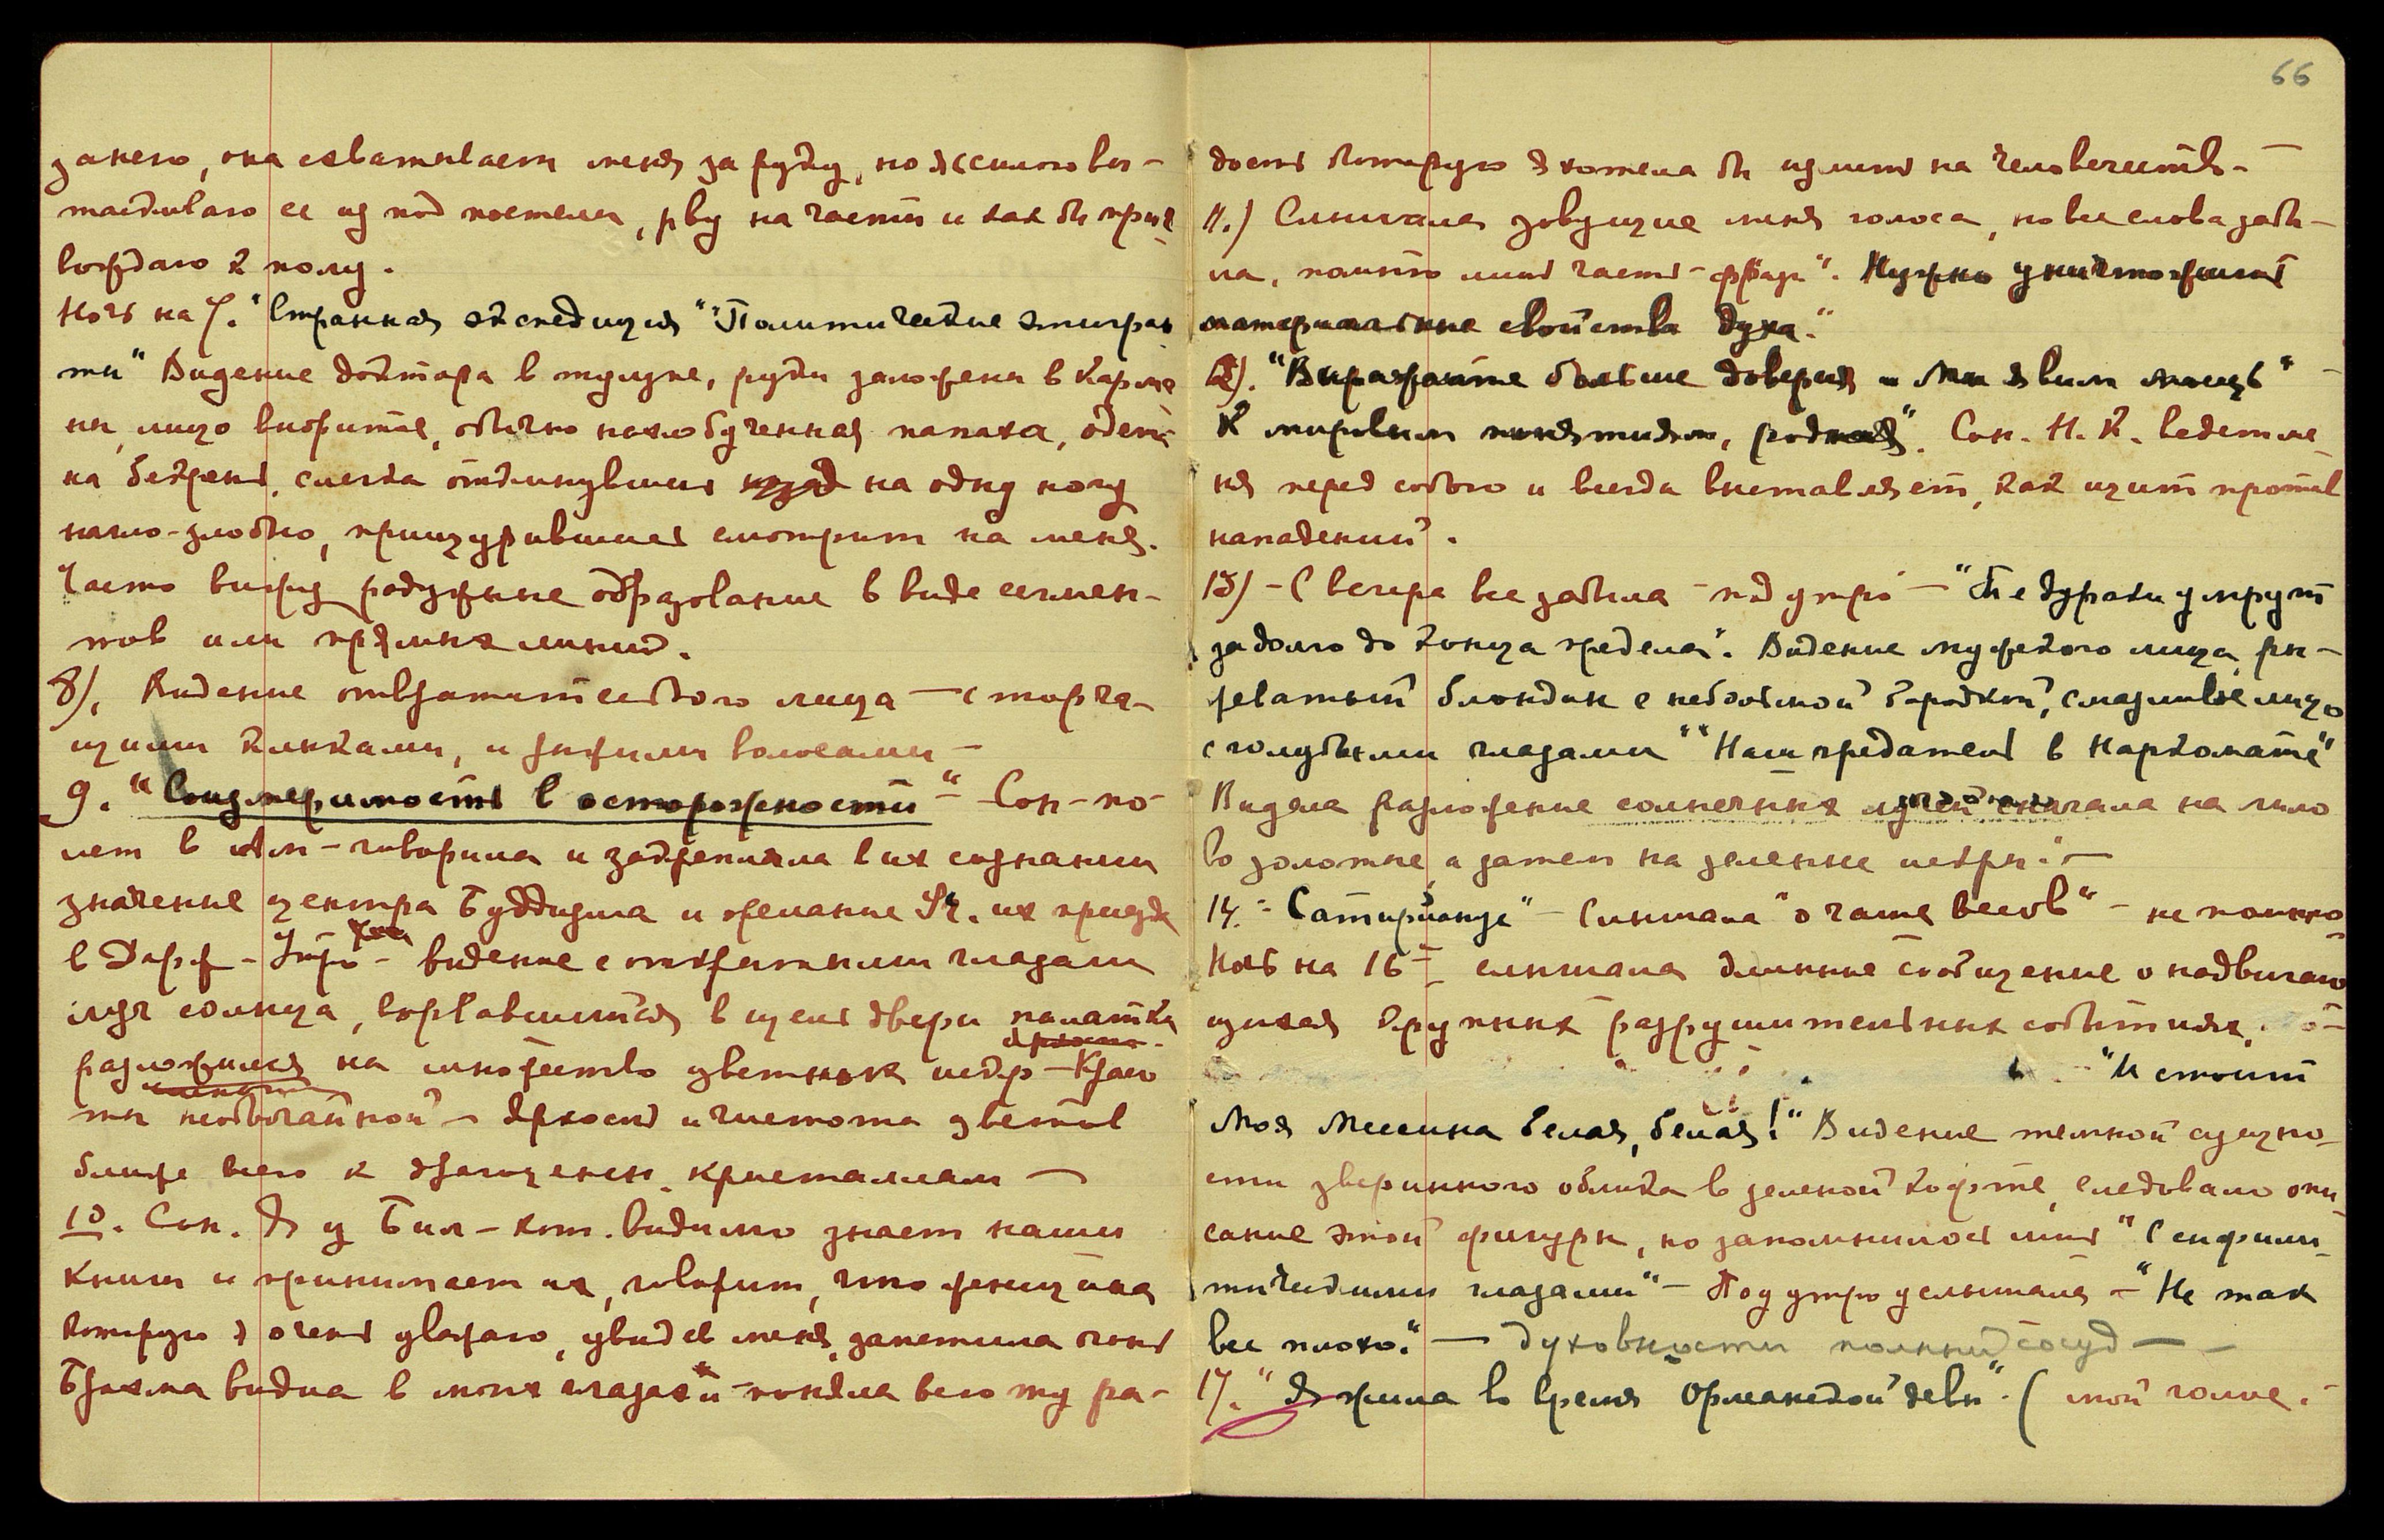 за него, она схватывает меня за руку, но я с силою вы-
таскиваю ее из под постели, рву на части и как бы приг-
вождаю к полу.
Ночь на 7. "Странная экспедиция" "Политические эмигран-
ты" Видение доктора в тулупе, руки заложены в карма-
ны, лицо внобритое, обычно нахлобученная папаха, одета
на бекрень, слегка откинувшись назад на одну ногу
нагло-злобно, прищурившись смотрит на меня.
Часто вижу радужные образование в виде сегмен-
тов или прямых линий.
8). Видение отвратительного лица — с торча-
щими клыками, и рыжими волосами —
9. "Соизмеримость в осторожности" – Сон – по-
лет в Ам – говорила и закрепляла в их сознании
значение центра Буддизма и желание Уч. их приезда
в Дарж – Утро – видение с открытыми глазами
луч солнца, ворвавшийся в щель двери палатки
разложился на множество цветных искр – Красо
ты необычайной – яркость и чистота цветов
ближе всего к драгоценн. кристаллам —
10. Сон. Я у Бил – кот. видимо знает наши
книги и принимает их, говорит, что женщина
которую я очень уважаю, увидев меня, заметила огонь
Брахма видна в моих глазах и – поняла всю ту ра-
66
дость которую я хотела бы излить на человечеств. –
11.) Слышала зовущие меня голоса, но все слова забы-
ла, помню лишь часть – фразы". Нужно уничтожить
материальные свойства духа."
12). "Выражайте больше доверия и Мы явим мощь" –
К мировым понятиям, родная". Сон. Н.К. ведет ме-
ня перед собою и всегда выставляет, как щит против
нападений.
13) – С вечера все забыла – под утро – "Те дураки умрут
задолго до конца предела". Видение мужского лица, ры-
жеватый блондин с небольшой бородкой, смазливое лицо
с голубыми глазами "Наш предатель в Наркомате"
Видела разложение солнечных лучей сначала на лило
во золотые, а затем на зеленые искры. —
14. – "Сатирианзе" – Слышала "о чаше весов" – не помню
Ночь на 16 слышала длинные сообщение о надвигаю
щихся крупных разрушительных событиях.
"И стоит
Моя Мессина белая, белая!" Видение темной сущно-
сти звериного облика в зеленой кофте, следовало опи
сание этой фигуры, но запомнилось лишь "С сифили-
тическими глазами" – Под утро услышала – "Не так
все плохо." — духовности полный сосуд — –
17. "Я жила во время Орлеанской девы". (мой голос.